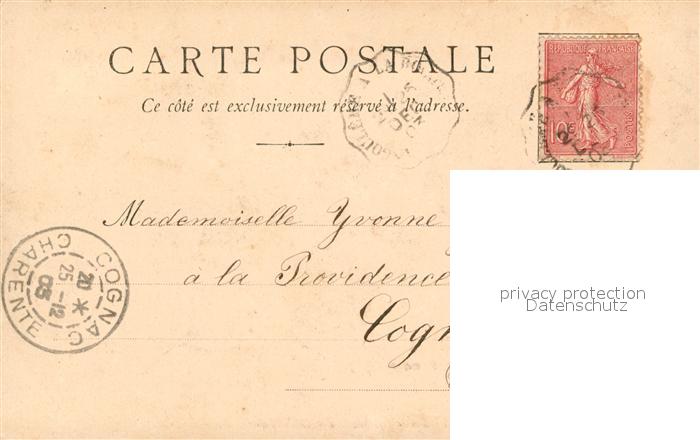 CARTE POSTALE
Ce côté est exclusivement réservé à l'adresse.
RÉPUBLIQUE FRANÇAISE
10c
POSTES
Mademoiselle Yvonne
à la Providence
Cogn
COGNAC
20 *
25 -12
03
CHARENTE
privacy protection
Datenschutz